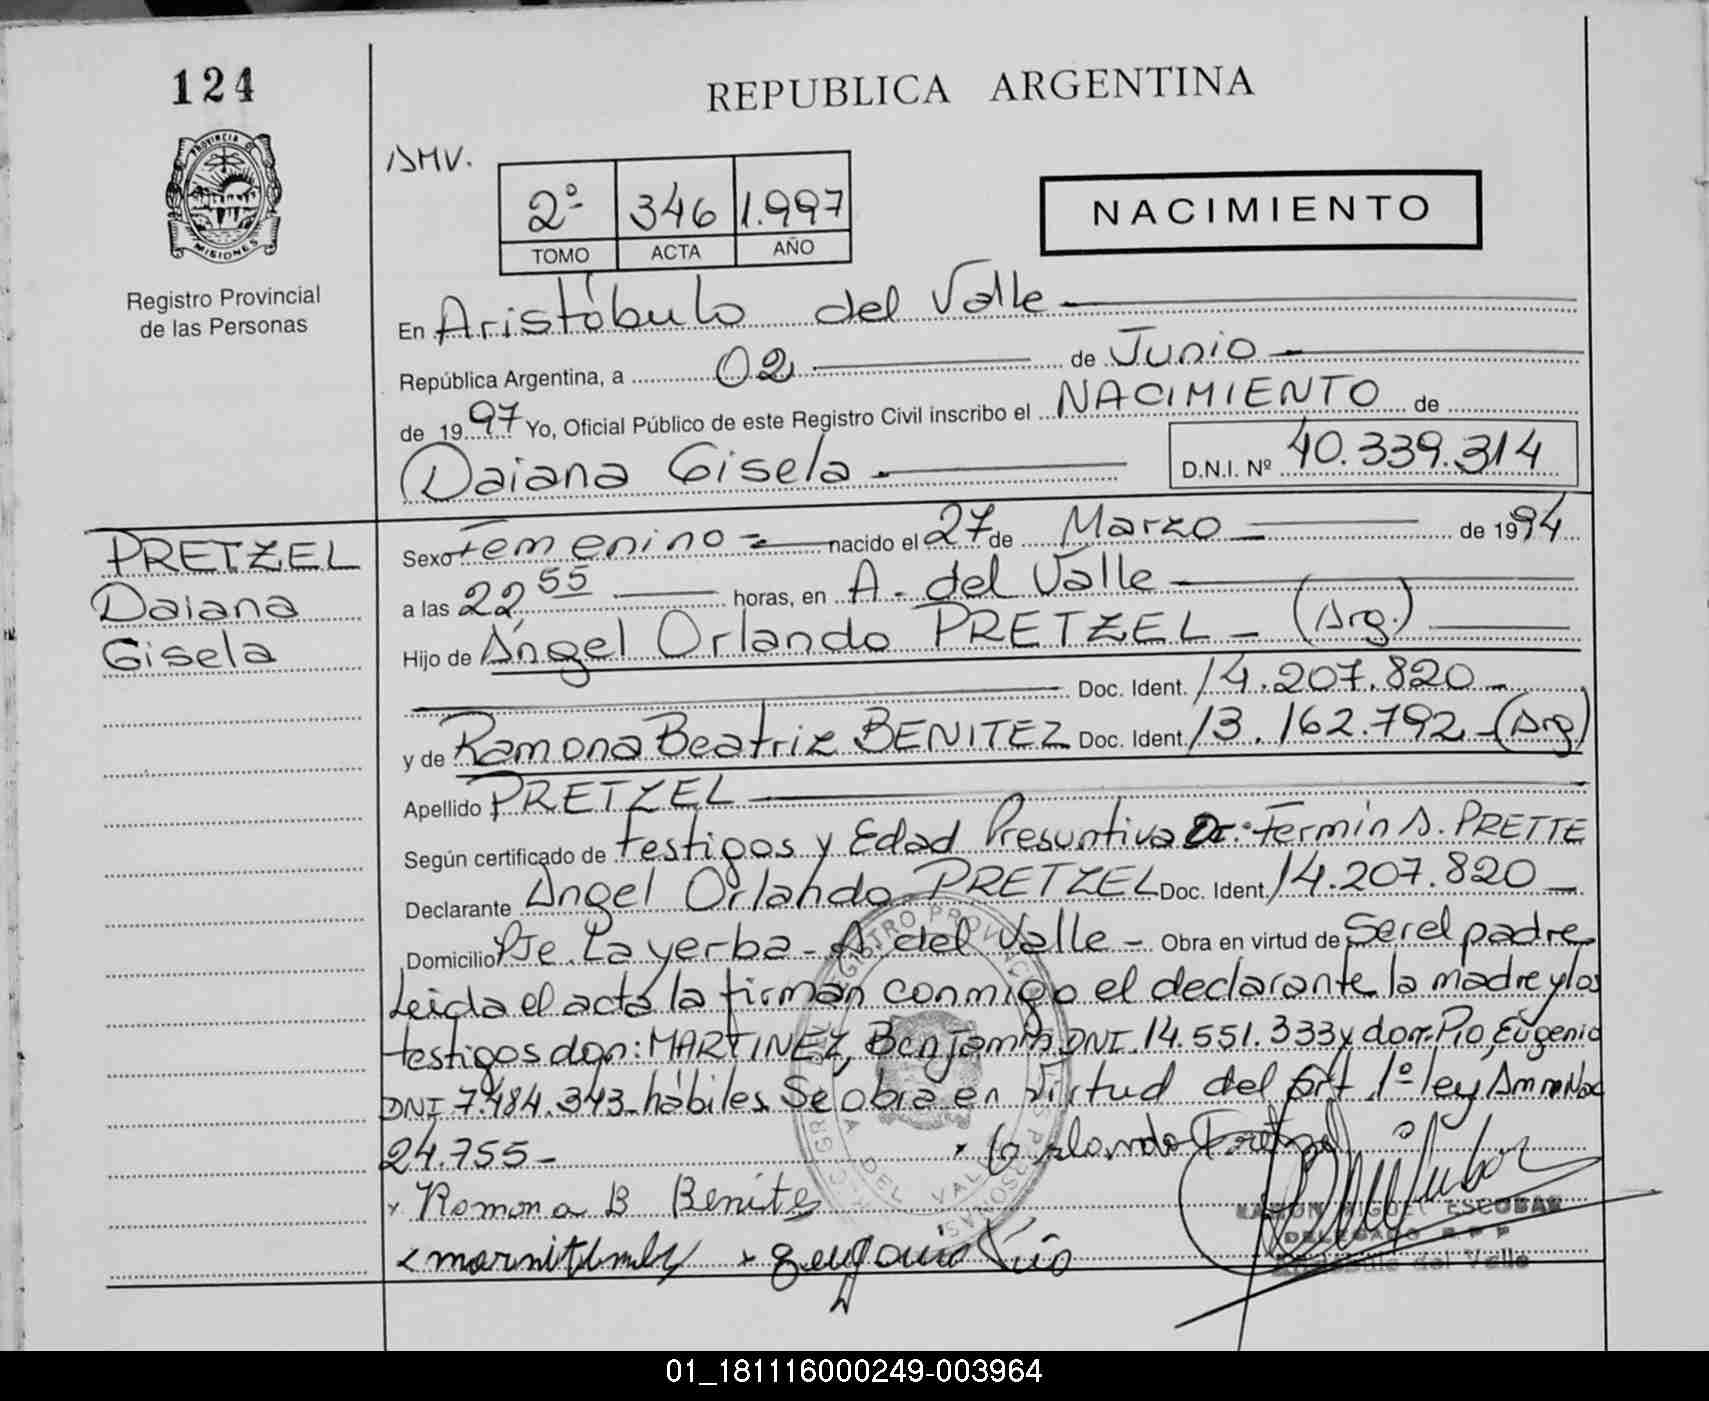 124
REPUBLICA ARGENTINA
PROVINCIA DE
MISIONES
Registro Provincial
de las Personas
2º 346 1.997
TOMO ACTA AÑO
NACIMIENTO
En Aristóbulo del Valle
República Argentina, a 02 de Junio
de 1997 Yo, Oficial Público de este Registro Civil inscribo el NACIMIENTO de
Daiana Gisela D.N.I. Nº 40.339.314
PRETZEL
Daiana
Gisela
Sexo Femenino nacido el 27 de Marzo de 1994
a las 22,55 horas, en A. del Valle
Hijo de Angel Orlando PRETZEL - (Arg.)
Doc. Ident. 14.207.820
y de Ramona Beatriz BENITEZ Doc. Ident. 13.162.792 - (Arg)
Apellido PRETZEL
Según certificado de testigos y Edad Presuntiva Dr. Fermín A. PRETTE
Declarante Angel Orlando PRETZEL Doc. Ident. 14.207.820
Domicilio Pje. La yerba - A. del Valle - Obra en virtud de Ser el padre
Leida el acta la firman conmigo el declarante la madre y los
testigos don: MARTINEZ, Benjamin DNI. 14.551.333 y don: Pio, Eugenio
DNI 7.484.343 hábiles Se obra en virtud del art 1º ley
24.755 -
x Orlando Pretzel
x Ramona B Benites
MIGUEL ESCOBAR
DELEGADO R P P
del Valle
01_181116000249-003964